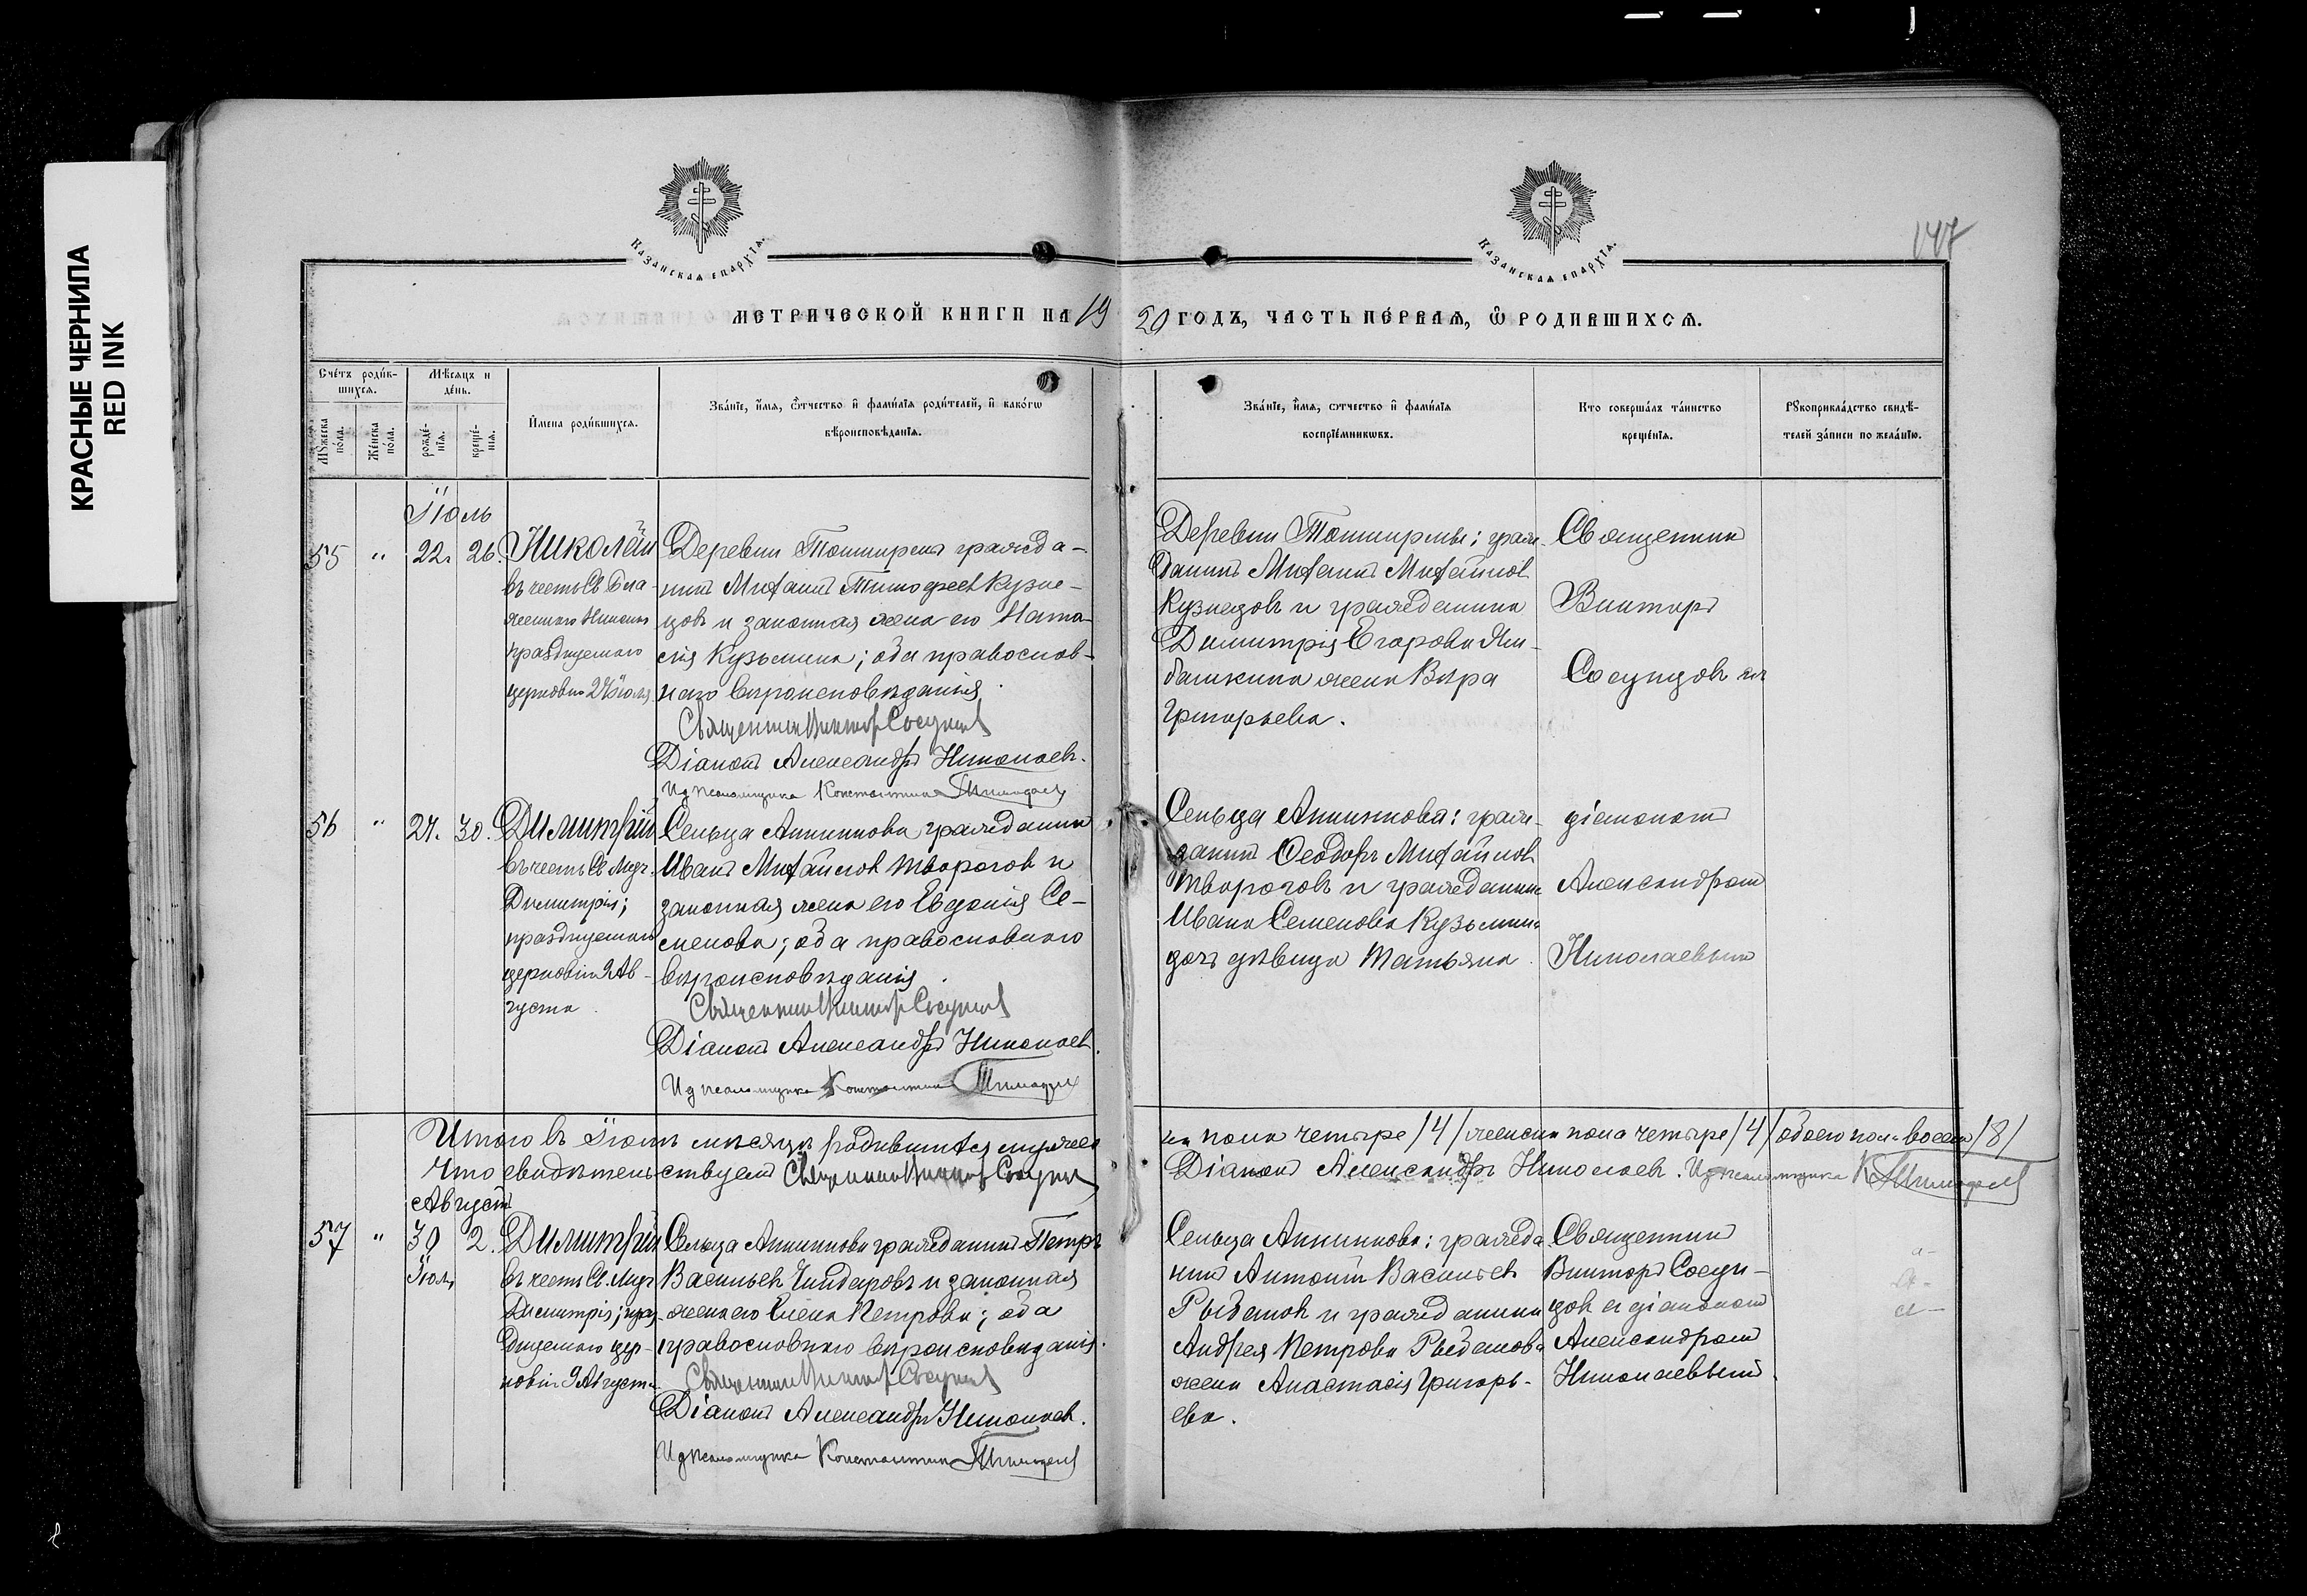 КРАСНЫЕ ЧЕРНИЛА
RED INK
147
Казанская епархїа.
Казанская епархїа.
МЕТРИЧЕСКОЙ КНИГИ НА 19
20 ГОДЪ, ЧАСТЬ ПЕ́РВАЯ, Ѿ РОДИВШИХСЯ.
Сче́тъ роди́в-
шихся.
Мѣсяцъ и
де́нь.
Мꙋжеска по́ла.
Же́нска по́ла.
рожде́-нїя.
креще́-нїя.
И҆мена роди́вшихся.
Зва́нїе, и҆́мя, ѻ҆́тчество и҆ фами́лїя роди́телей, и҆ како́гѡ
вѣроисповѣ́данїя.
Зва́нїе, и҆́мя, ѻтчество и҆ фами́лїя
воспрїе́мникѡвъ.
Кто соверша́лъ та́инство
креще́нїя.
Рꙋкоприкла́дство свидѣ́-
телей за́писи по жела́нїю.
Їюль
55 " 22. 26. Николай
въ честь Св. Бла-
женнаго Николая
празднуемаго
церковію 27 Їюля
Деревни Тоншерма гражда-
нинъ Михаилъ Тимофеев Кузне-
цовъ и законная жена его Ната-
лія Кузьмина; оба православ-
наго вѣроисповѣданія.
Священник Виктор Сосунцов
Діаконъ Александръ Николаев.
Ид псаломщика Константин Тимофеев
Деревни Тоншермы: граж-
данинъ Михаилъ Михайлов
Кузнецовъ и гражданина
Димитрія Егорова Ям-
башкина жена Вѣра
Григорьева.
Священник
Викторъ
Сосунцовъ
56 " 27. 30. Димитрій
въ честь Св. Муч.
Димитрія;
празднуемаго
церковію 9 Ав-
густа
Сельца Аникиева гражданин
Иванъ Михайлов Творогов и
законная жена его Евдокія Се-
менова; оба православнаго
вѣроисповѣданія.
Священник Виктор Сосунцов
Діаконъ Александръ Николаев.
Ид псаломщика Константин Тимофеев
Сельца Аникиева: граж-
данинъ Ѳеодоръ Михайлов
Творогов и гражданина
Ивана Семенова Кузьмина
дочь дѣвица Татьяна.
діаконом
Александром
Николаевым
Итого в Їюлѣ месяцѣ родившихся мужес
ка пола четыре /4/ женска пола четыре /4/ обоего пола восемь /8/
Что свидѣтельствуем Священник Виктор Сосунцов
Діаконъ Александръ Николаев. Ид псаломщика К Тимофеев
Август
57 " 30 2. Димитрій
Їюля
въ честь Св. Муч
Димитрія; праз-
днуемаго цер-
ковію 9 Августа
Сельца Аникиева гражданинъ Петръ
Васильев и законная
жена его Елена Петрова; оба
православнаго вѣроисповѣданія.
Священник Виктор Сосунцов
Діаконъ Александръ Николаев.
Ид псаломщика Константин Тимофеев
Сельца Аникиева: гражда
нинъ Антоній Васильев
Рыбаков и гражданина
Андрея Петрова Рыбакова
жена Анастасія Григорь-
ева.
Священник
Викторъ Сосун-
цов с діаконом
Александром
Николаевым